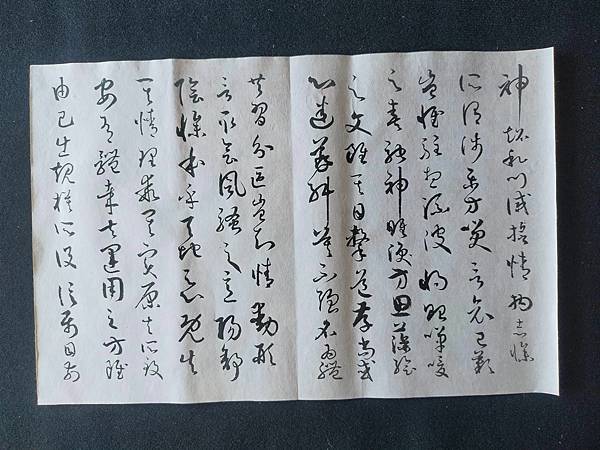 神超私門誡誓情拘志慘
所謂涉樂方笑言哀已歎
豈惟駐想流波將貽嘽喛
之奏馳神睢渙方思藻繪
之文雖其目擊道存尚或
心迷議舛莫不強名為體
共習分區豈知情動形
言取會風騷之意陽舒
陰慘本乎天地之心既失
其情理乖其實原夫所致
安有體哉夫運用之方雖
由己出規模所設信屬目前